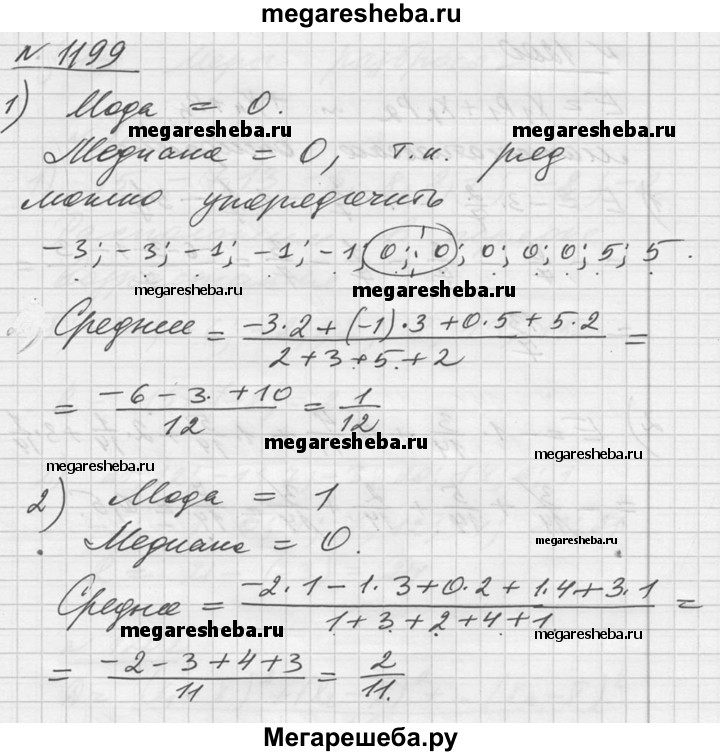 megaresheba.ru
№ 1199
1) Мода = 0.
megaresheba.ru megaresheba.ru
Медиана = 0, т.к. ряд
можно упорядочить
-3; -3; -1; -1; -1; 0; 0; 0; 0; 0; 5; 5.
megaresheba.ru megaresheba.ru
Среднее = (-3·2 + (-1)·3 + 0·5 + 5·2)/(2+3+5+2) =
= (-6 - 3 + 10)/12 = 1/12
megaresheba.ru
megaresheba.ru megaresheba.ru
2) Мода = 1
Медиана = 0.
megaresheba.ru
Средне = (-2·1 - 1·3 + 0·2 + 1·4 + 3·1)/(1+3+2+4+1) =
megaresheba.ru megaresheba.ru
= (-2 - 3 + 4 + 3)/11 = 2/11.
Мегарешеба.ру